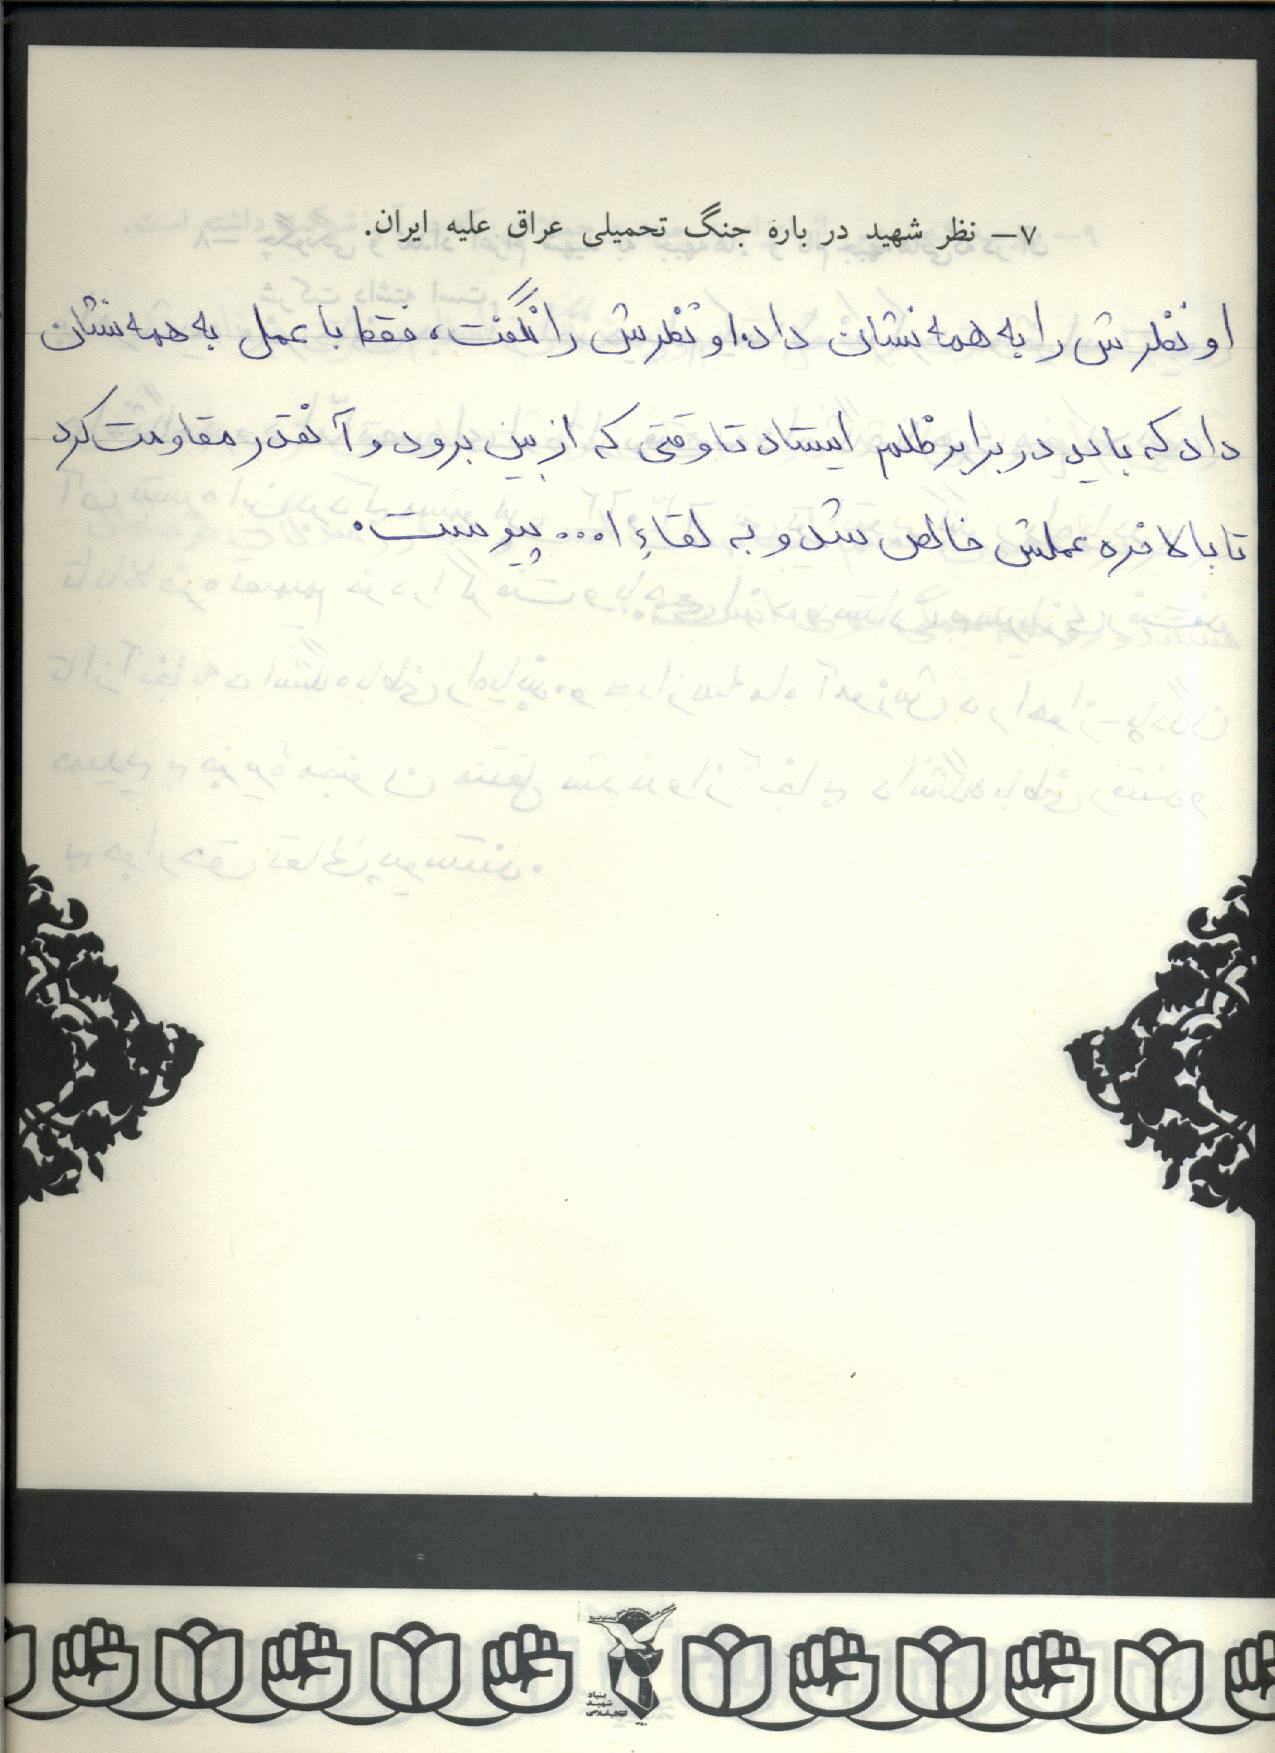 ۷– نظر شهید در باره جنگ تحمیلی عراق علیه ایران.
او نظرش را به همه نشان داد. او نظرش را نگفت، فقط با عمل به همه نشان
داد که باید در برابر ظلم ایستاد تا وقتی که از بین برود و آنقدر مقاومت کرد
تا بالاخره عملش خالص شد و به لقاء ا... پیوست.
بنیاد
شهید
انقلاب اسلامی